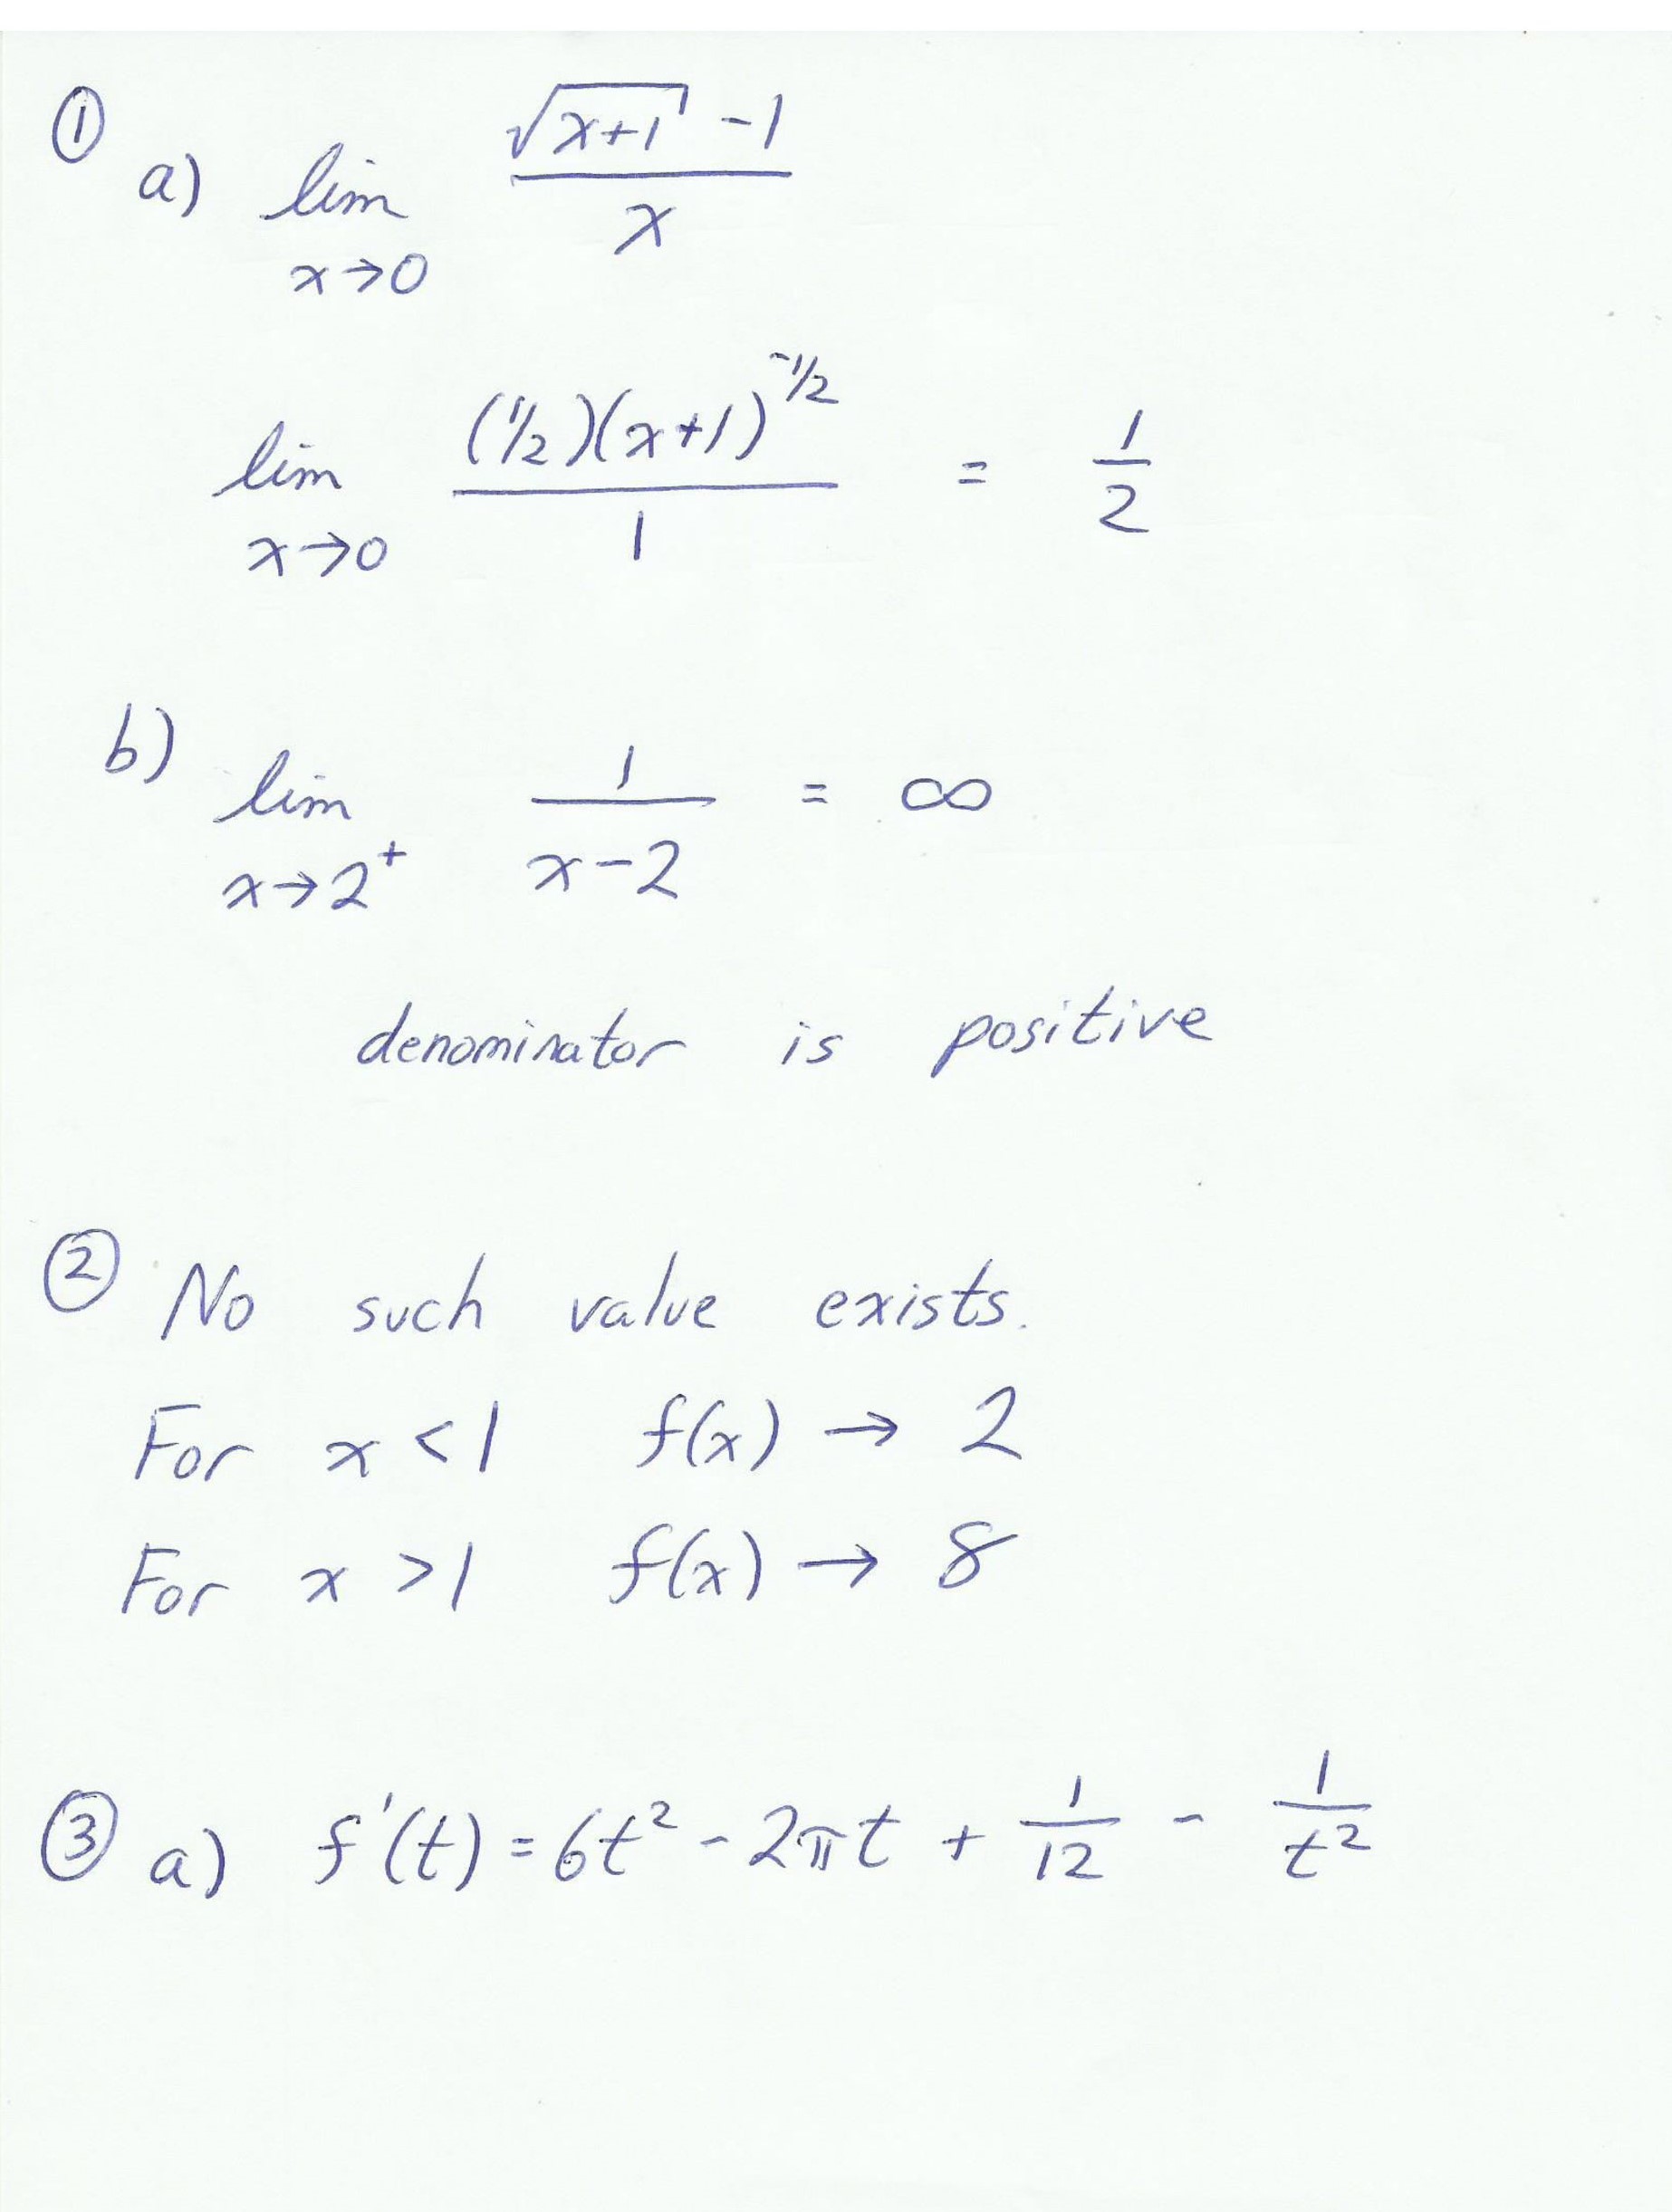 ① a) lim x→0 (√(x+1) - 1)/x
lim x→0 ((1/2)(x+1)^(-1/2))/1 = 1/2
b) lim x→2⁺ 1/(x-2) = ∞
denominator is positive
② No such value exists.
For x < 1 f(x) → 2
For x > 1 f(x) → 8
③ a) f'(t) = 6t² - 2πt + 1/12 - 1/t²